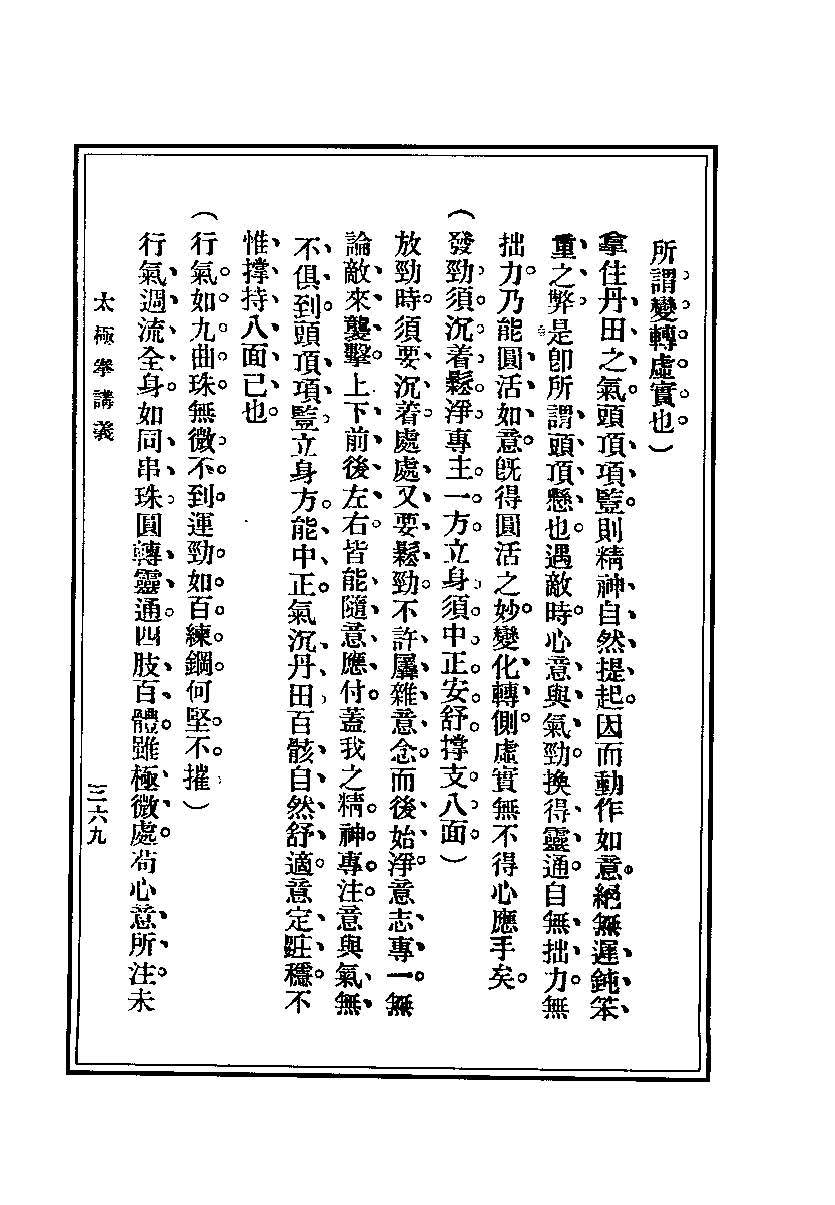 所謂變轉虛實也）
拿住丹田之氣頭頂項豎則精神自然提起因而動作如意絕無遲鈍笨
重之弊是卽所謂頭頂懸也遇敵時心意與氣勁換得靈通自無拙力無
拙力乃能圓活如意旣得圓活之妙變化轉側虛實無不得心應手矣
（發勁須沉着鬆淨專主一方立身須中正安舒撐支八面）
放勁時須要沉着處處又要鬆勁不許羼雜意念而後始淨意志專一無
論敵來襲擊上下前後左右皆能隨意應付蓋我之精神專注意與氣無
不俱到頭頂項豎立身方能中正氣沉丹田百骸自然舒適意定跓穩不
惟撐持八面已也
（行氣如九曲珠無微不到運勁如百練鋼何堅不摧）
行氣週流全身如同串珠圓轉靈通四肢百體雖極微處苟心意所注未
太極拳講義
三六九